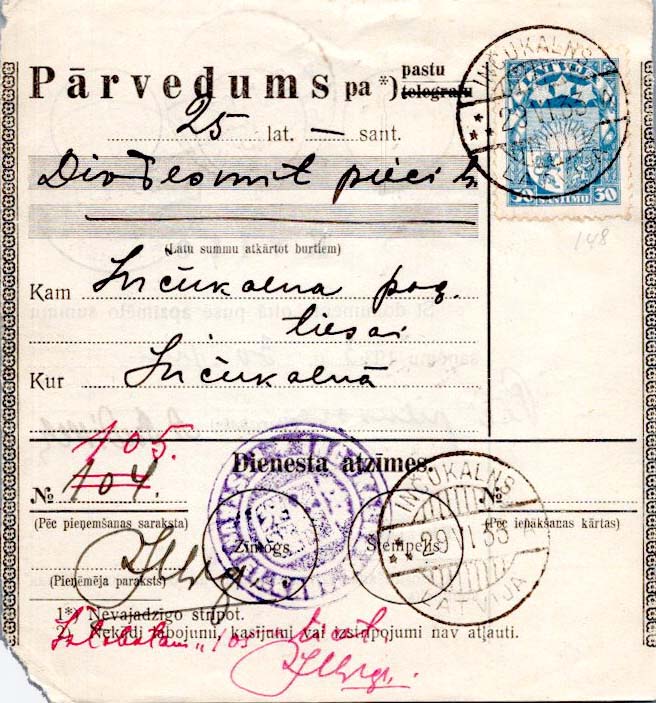 Pārvedums pa *) pastu
telegrafu
25 lat. — sant.
Divdesmit pieci
(Latu summu atkārtot burtiem)
Kam Inčukalna pag.
tiesai
Kur Inčukalnā
INČUKALNS
29 VI 33
LATVIJA
30 SANTIMU 30
148
105.
Dienesta atzīmes.
№ 104.
№
(Pēc pieņemšanas saraksta)
(Pēc ienākšanas kārtas)
Zīmogs.
Stempelis
INČUKALNS
29 VI 33
LATVIJA
(Pieņēmēja paraksts)
1*) Nevajadzīgo strīpot.
2) Nekādi labojumi, kasījumi vai izstrīpojumi nav atļauti.
"105"